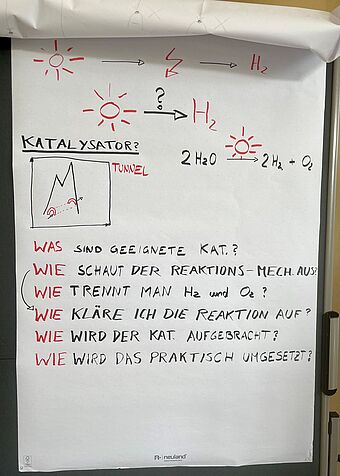 → → H₂
? → H₂
KATALYSATOR?
2 H₂O → 2 H₂ + O₂
TUNNEL
WAS SIND GEEIGNETE KAT.?
WIE SCHAUT DER REAKTIONS-MECH. AUS?
WIE TRENNT MAN H₂ und O₂?
WIE KLÄRE ICH DIE REAKTION AUF?
WIE WIRD DER KAT. AUFGEBRACHT?
WIE WIRD DAS PRAKTISCH UMGESETZT?
neuland